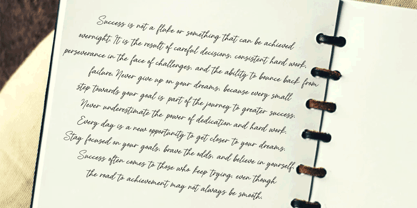 Success is not a fluke or something that can be achieved
overnight. It is the result of careful decisions, consistent hard work,
perseverance in the face of challenges, and the ability to bounce back from
failure. Never give up on your dreams, because every small
step towards your goal is part of the journey to greater success.
Never underestimate the power of dedication and hard work.
Every day is a new opportunity to get closer to your dreams.
Stay focused on your goals, brave the odds, and believe in yourself.
Success often comes to those who keep trying, even though
the road to achievement may not always be smooth.